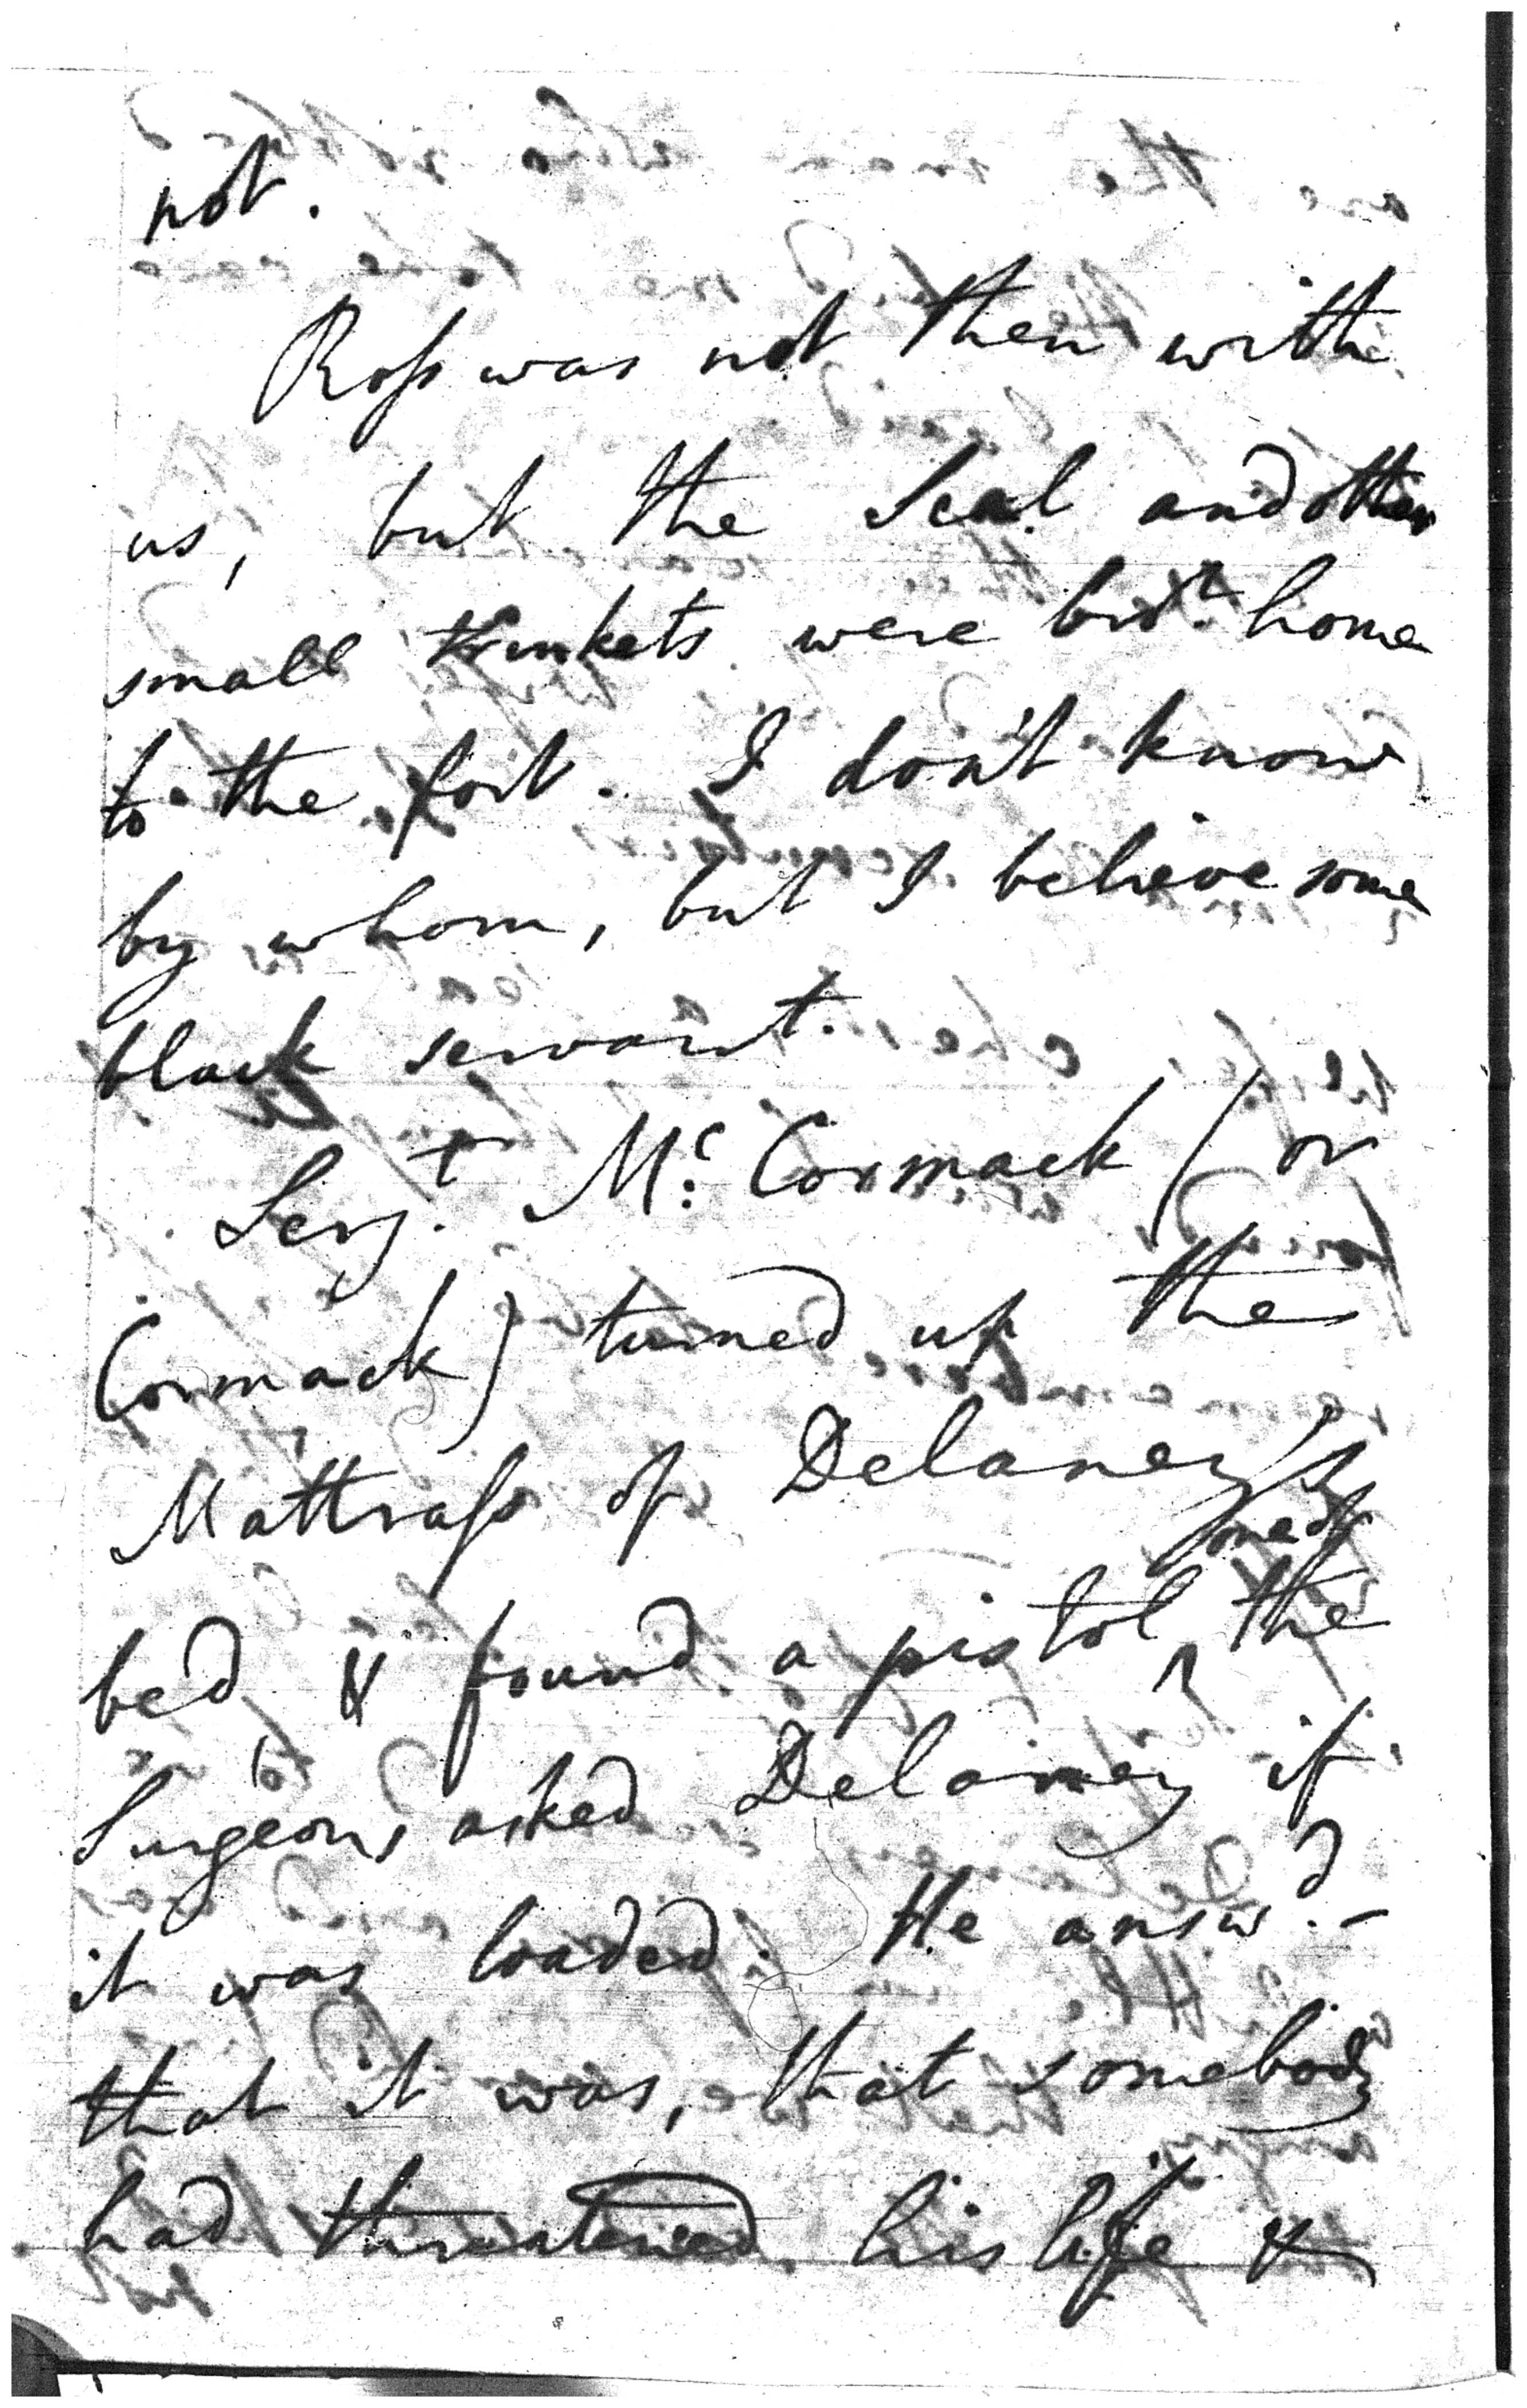 not.
Ross was not then with
us, but the Seal and other
small trinkets were bro.t home
to the fort. I don't know
by whom, but I believe some
black servant.
Serj.t Mc. Cormack (or
Cormack) turned up the
Mattrass of Delaney's
one of
bed & found a pistol ^ the
Surgeons asked Delaney if
it was loaded. He answ.d -
that it was, that somebody
had threatened his life &